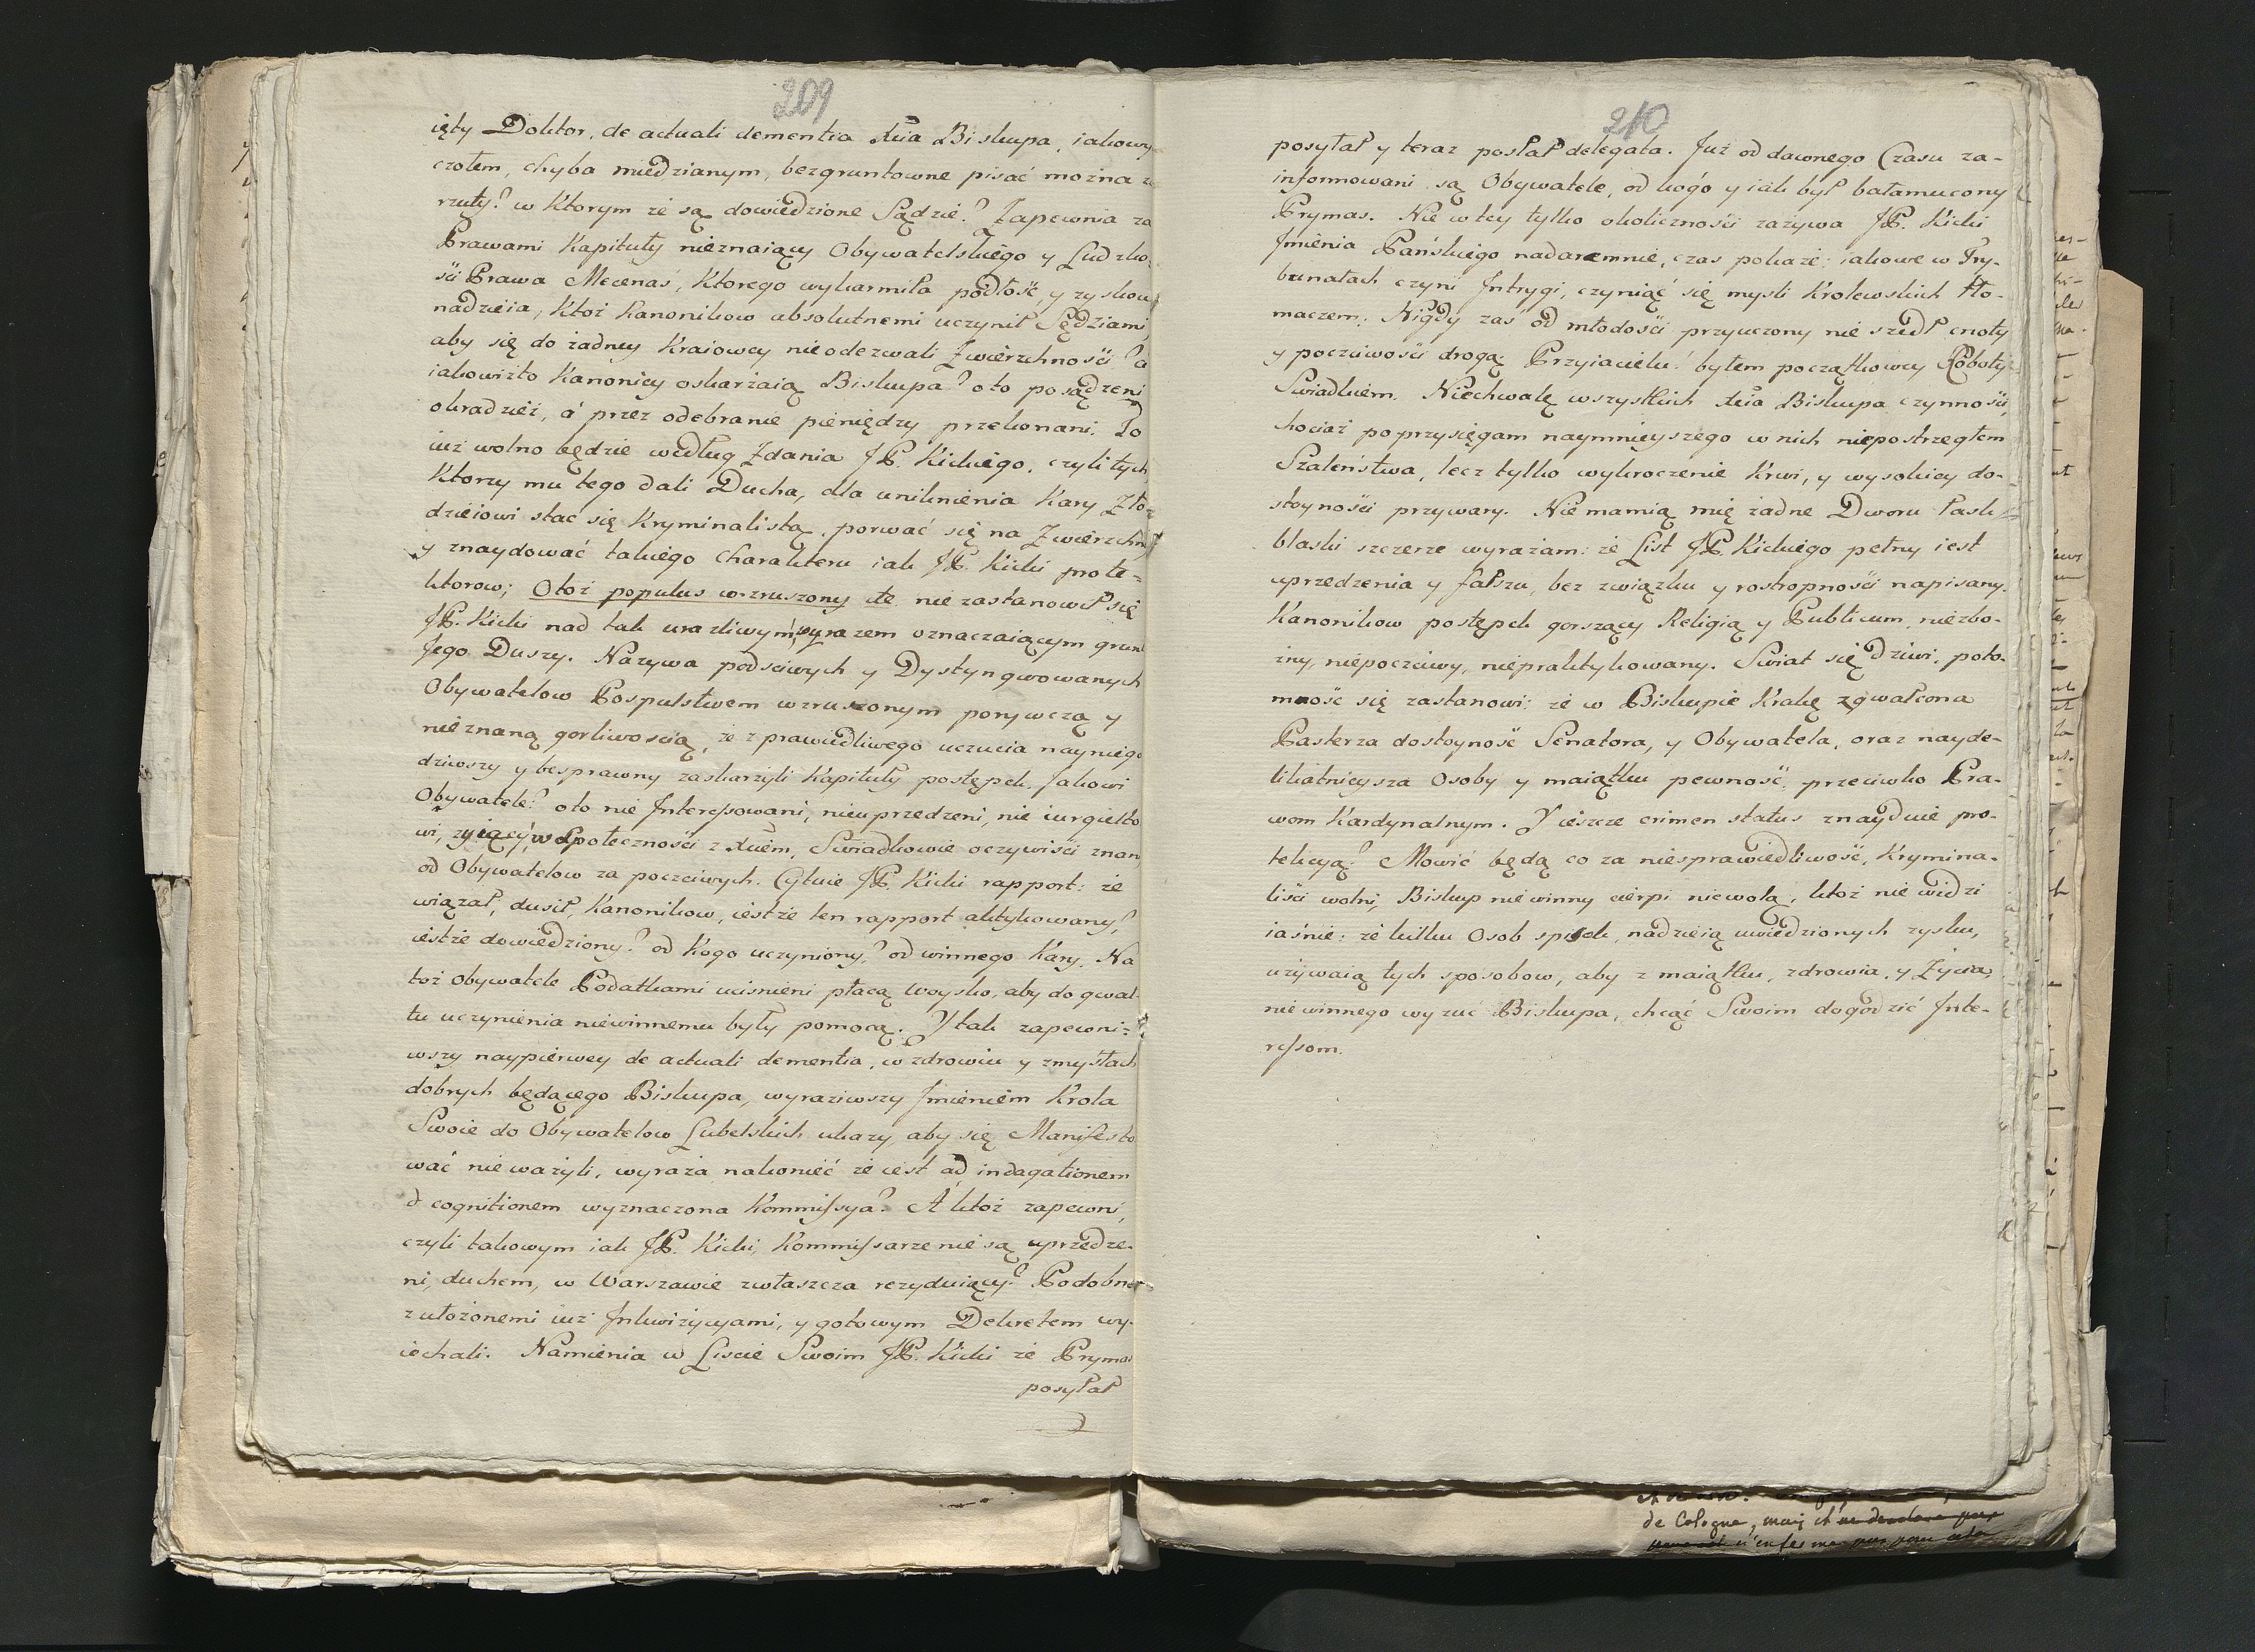 209
ięty Doktor, de actuali dementia Xcia Biskupa, iakowy
czołem, chyba miedzianym, bezgruntowne pisać można za
rzuty? w Ktorym że są dowiedzione Sądzie? Zapewnia za
Prawami Kapituły nieznaiący Obywatelskiego y Ludzko
ści Prawa Mecenas, Ktorego wykarmiła podłość, y zyskow
nadzieia, Ktoż Kanonikow absolutnemi uczynił Sędziami,
aby się do żadney Kraiowey nieodezwali Zwierzchności? a
iakowiżto Kanonicy oskarżaią Biskupa? oto posądzeni
okradzież, á przez odebranie pieniędzy przekonani. To
iuż wolno będzie według Zdania JP. Kickiego, czyli tych
Ktorzy mu tego dali Ducha, dla uniknienia Kary Zło-
dzieiowi stać się Kryminalistą, porwać się na Zwierzchn
y znaydować takiego Charakteru iak JP. Kicki prote=
ktorow; Otoż populus wzruszony etc nie zastanowił się
JP. Kicki nad tak urazliwym wyrazem oznaczaiącym grun
Jego Duszy. Nazywa podsciwych y Dystyngwowanych
Obywatelow Pospulstwem wzruszonym porywczą y
nieznaną gorliwoscią, że z prawiedliwego uczucia nayniego
dziwszy y besprawny zaskarżyli Kapituły postępek. Jakowi
Obywatele? oto nie Interessowani, nieuprzedzeni, nie iurgielto
wi, zyiący w społeczności z Xciem, Swiadkowie oczywiści znan
od Obywatelow za poczciwych. Cytuie JP. Kicki rapport: że
wiązał, dusił, Kanonikow, iestże ten rapport aktykowany?
iestże dowiedziony? od Kogo uczyniony? od winnego Kary. Na
toż Obywatele Podatkami uciśnieni płacą Woysko, aby do gwał-
tu uczynienia niewinnemu były pomocą. Y tak zapewni=
wszy naypierwey de actuali dementia, w zdrowiu y zmysłach
dobrych będącego Biskupa, wyraziwszy Imieniem Krola
Swoie do Obywatelow Lubelskich ukazy, aby się Manifesto
wać nieważyli, wyraża nakonieć że iest ad indagationem
& cognitionem wyznaczona Kommissya? A ktoż zapewni,
czyli takowym iak JP. Kicki, Kommissarze nie są uprzedze-
ni, duchem, w Warszawie zwłaszcza rezyduiący? Podobno
z ułożonemi iuż Inkwizycyami, y gotowym Dekretem wy-
iechali. Namienia w Liscie Swoim JP. Kicki że Prymas
posyłał
210
posyłał y teraz posłał delegata. Już od dawnego Czasu za-
informowani są Obywatele, od kogo y iak był bałamucony
Prymas. Nie w tey tylko okoliczności zażywa JP. Kicki
Imienia Pańskiego nadaremnie, czas pokaże: iakowe w Try-
bunałach czyni Intrygi, czyniąć się mysli Krolewskich tło-
maczem; Nigdy zaś od młodości przyuczony nie szedł cnoty
y poczciwości drogą. Przyiacielu! byłem początkowey Roboty
Swiadkiem. Niechwalę wszystkich Xcia Biskupa czynnosci,
chociaż poprzysięgam naymnieyszego w nich niepostrzegłem
Szaleństwa, lecz tylko wykroczenie Krwi, y wysokiey do-
stoyności przywary. Nie mamią mię żadne Dworu łask
blaski szczerze wyrażam: że List JP. Kickiego pełny iest
uprzedzenia y fałszu, bez związku y rostropności napisany.
Kanonikow postępek gorszący Religią y Publicum, niezbo-
żny, niepoczciwy, niepraktykowany. Swiat się dziwi, poto-
mność się zastanowi: że w Biskupie Krakę zgwałcona
Pasterza dostoyność Senatora, y Obywatela, oraz nayde-
likatnieysza Osoby y maiątku pewność, przeciwko Pra-
wom Kardynalnym. Y ieszcze crimen status znayduie pro-
tekcyą? Mowić będą co za niesprawiedliwość, Krymina-
liści wolni, Biskup niewinny cierpi niewolą; ktoż nie widzi
iaśnie: że kilku Osob spisek, nadzieią uwiedzionych zysku,
używaią tych sposobow, aby z maiątku, zdrowia, y Życia,
niewinnego wyzuć Biskupa, chcąć Swoim dogodzić Inte-
ressom.
de Cologne, mais